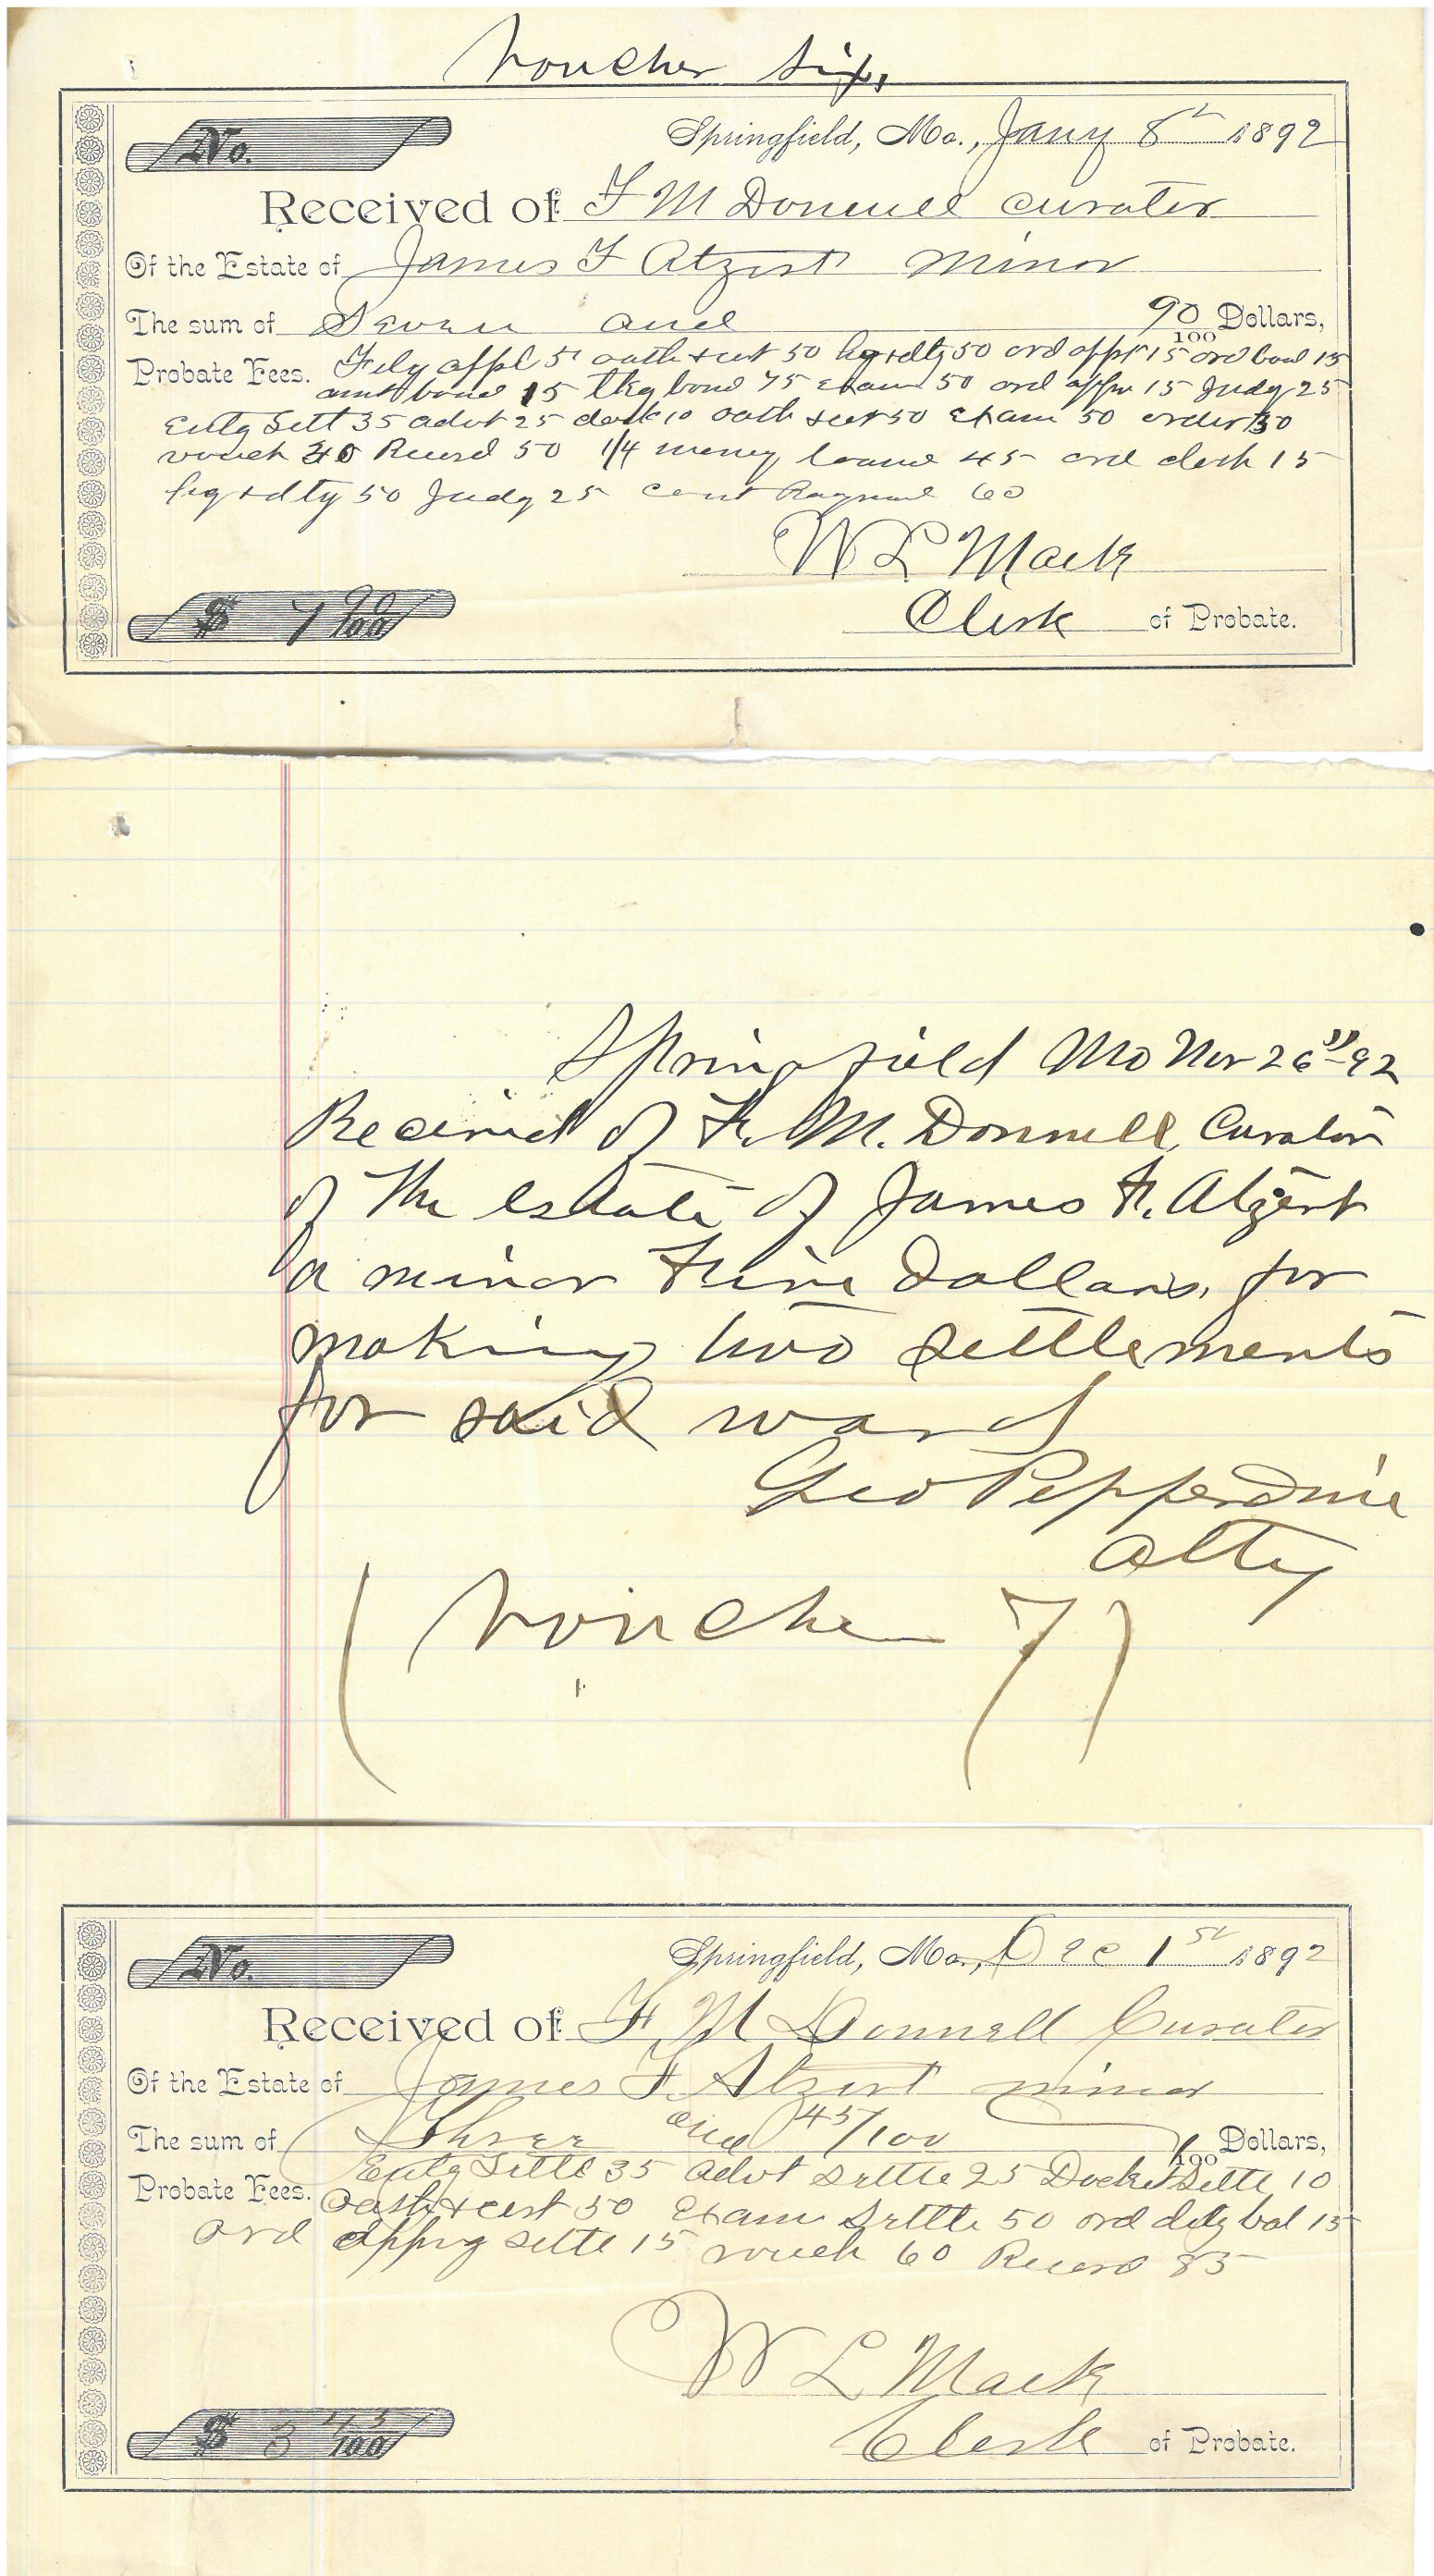 Voucher Six,
No. Springfield, Mo., Jany 8th 1892
Received of F M Donnell curator
Of the Estate of James F Atzert minor
The sum of Seven and 90/100 Dollars,
Probate Fees. Filg appl 5 oath & cert 50 lig & dltg 50 ord appt 15 ord bond 15
amt bond 15 tkg bond 75 Exam 50 ord appr 15 Judg 25
Entg Sett 35 advt 25 dock 10 oath & cert 50 Exam 50 order 30
vouch 40 Record 50 1/4 money loand 45 ord clerk 15
lig & dltg 50 Judg 25 60
W L Mack
$ 7 90/100 Clerk of Probate.
Springfield Mo Nov 26" 92
Received of F. M. Donnell, Curator
of the estate of James F. Atzert
a minor Five Dollars, for
making two settlements
for said ward
Geo Pepperdine
Atty
(Voucher 7)
No. Springfield, Mo., Dec 1st 1892
Received of F M Donnell Curator
Of the Estate of James F. Atzert minor
The sum of Three and 45/100 /100 Dollars,
Probate Fees. Entg Settl 35 advt Settle 25 Docket Settle 10
Oath & cert 50 Exam Settle 50 ord dltg bal 15
ord Appvg Settle 15 vouch 60 Record 85
W L Mack
$ 3 45/100 Clerk of Probate.